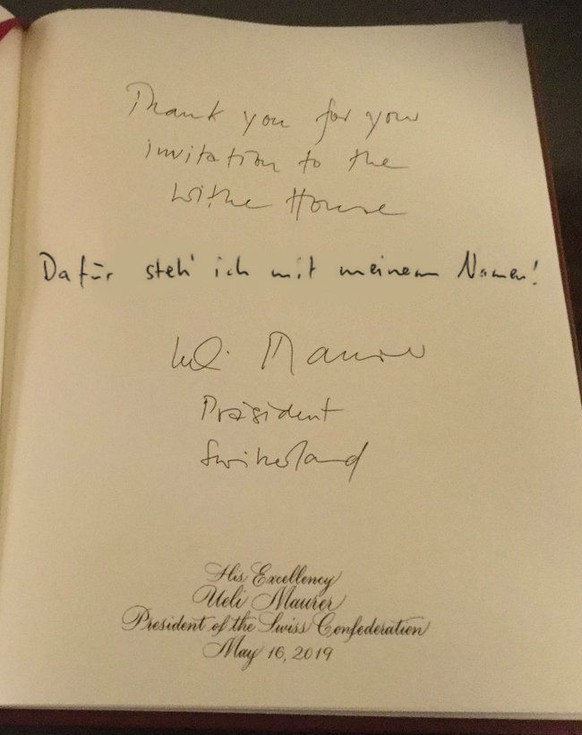 Thank you for your
invitation to the
Withe House
Dafür steh' ich mit meinem Namen!
Ueli Maurer
Präsident
Switzerland
His Excellency
Ueli Maurer
President of the Swiss Confederation
May 16, 2019